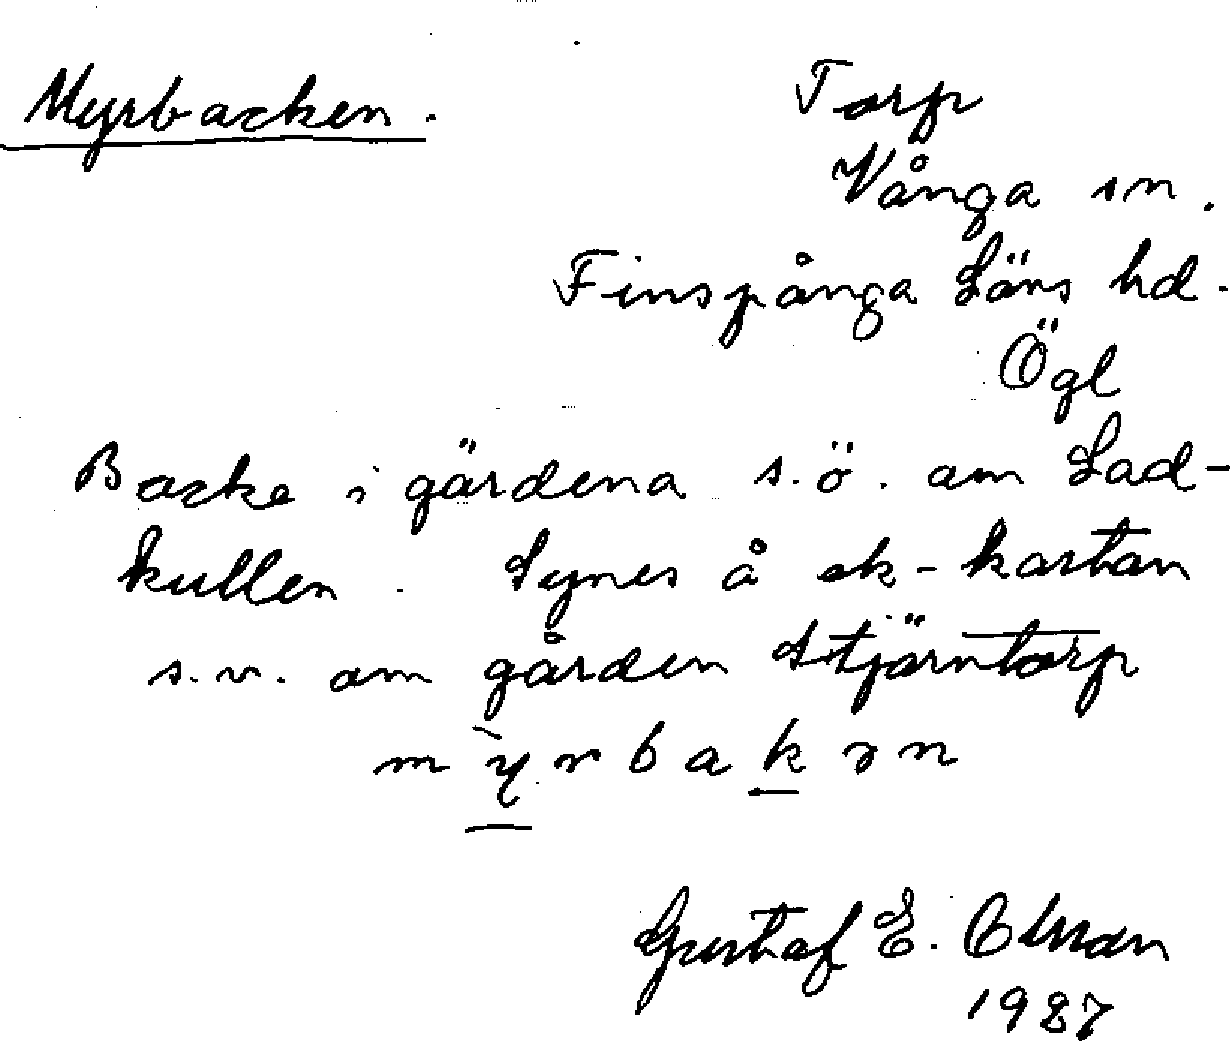 Myrbacken.
Torp
Vånga sn.
Finspånga Läns hd.
Ögl
Backe i gärdena s.ö. om Lad-
kullen. Synes å ek-kartan
s.v. om gården Stjärntorp
mỳrbakɘn
Gustaf E. Olsson
1927